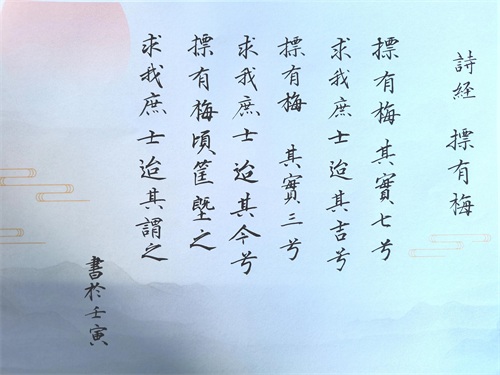 詩経 摽有梅
摽有梅其實七兮
求我庶士迨其吉兮
摽有梅 其實三兮
求我庶士迨其今兮
摽有梅頃筐塈之
求我庶士迨其謂之
書於壬寅